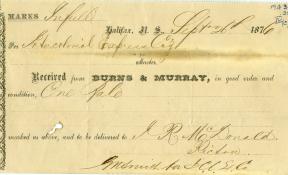 MARKS In full Halifax, N. S., Sept 26 1876
Per Intercolonial Express Coy
Master
Received from BURNS & MURRAY, in good order and
condition, One Bale
marked as above, and to be delivered to J. R. McDonald
Pictou